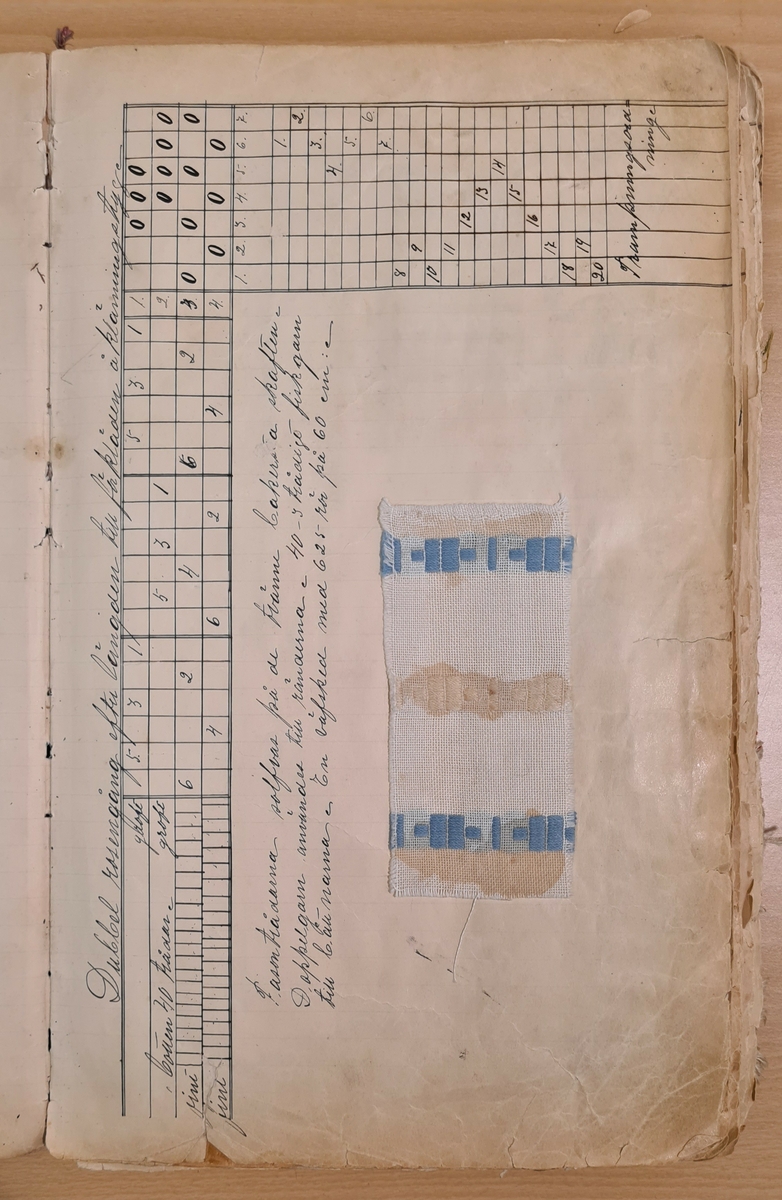 Dubbel rosengång efter längden till förkläden å klädningstyg
groft 5 3 1 5 3 1 1. 0 0 0
Botten 40 trådar groft 5 3 1 2. 0 0 0 0
fint 6 2 4 6 2 3 0 0 0 0
fint 4 6 2 4 4 0 0 0
1. 2. 3. 4. 5. 6. 7.
1.
2.
3.
4
5.
6
7
8
9
10
11
12
13
14
15
16
17
18
19
20
Trampningsord=
ning
Fasontrådarna solfvas på de tvänne bakersta skaften
Doppelgarn användes till ränderna 40-3 trådigt fiskgarn
till bottnarna En väfsked med 625 rör på 60 cm